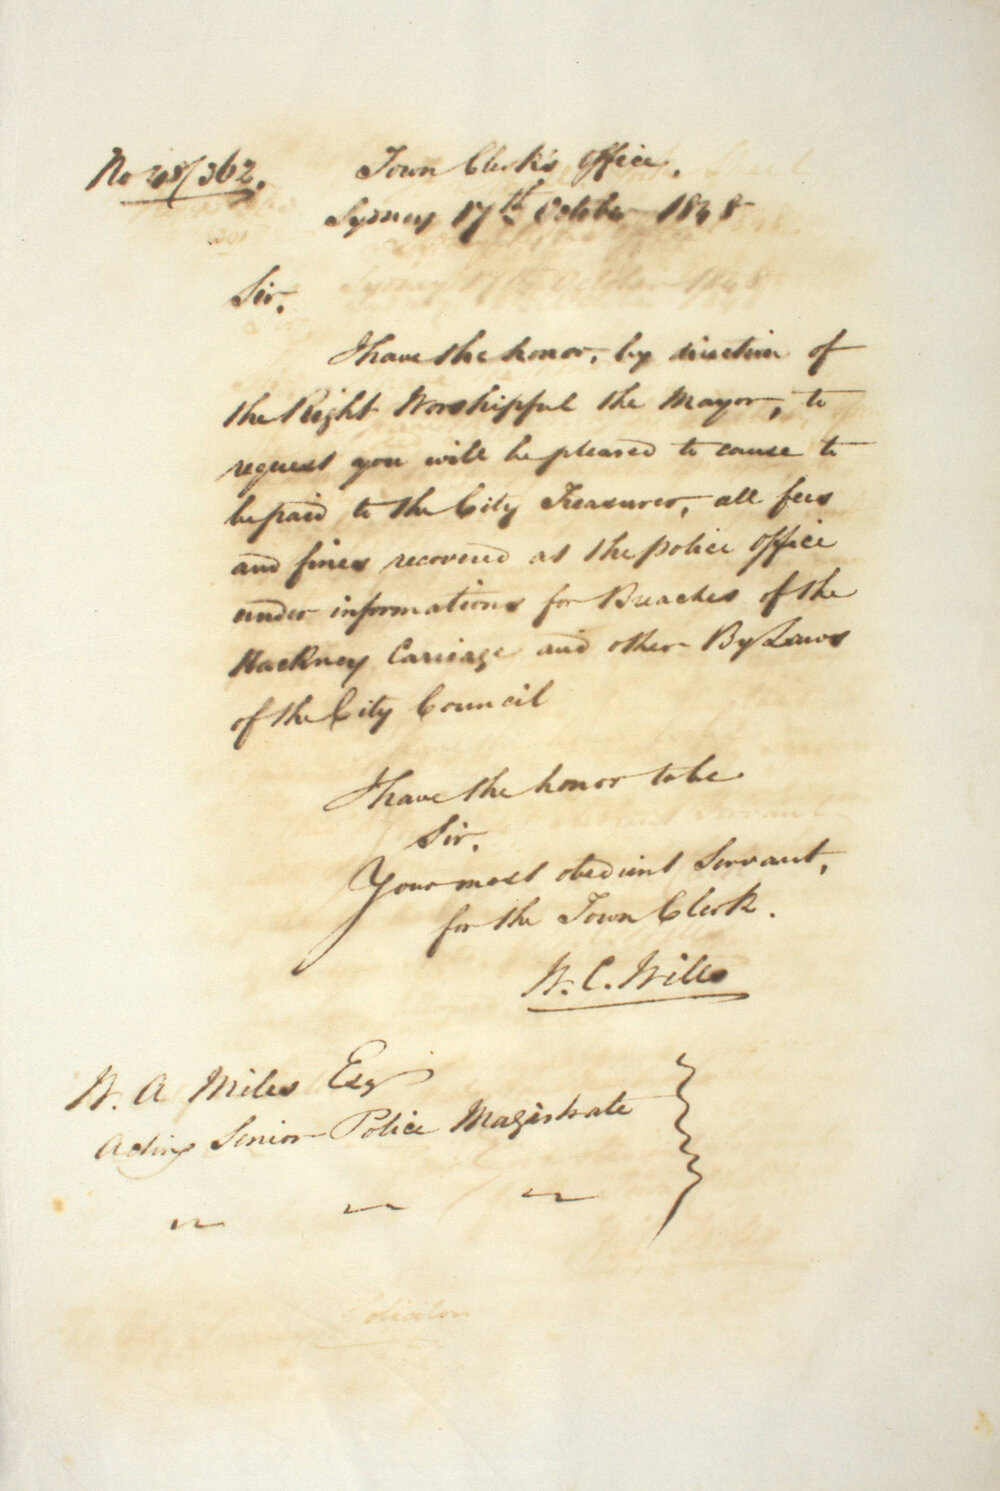 No 48/362.
Town Clerk's Office,
Sydney 17th October 1848
Sir,
I have the honor, by direction of
the Right Worshipful the Mayor, to
request you will be pleased to cause to
be paid to the City Treasurer, all fees
and fines recovered at the police office
under informations for Breaches of the
Hackney Carriage and other By Laws
of the City Council
I have the honor to be
Sir,
Your most obedient Servant,
for the Town Clerk.
W. C. Wills
W. A Miles Esq
Acting Senior Police Magistrate
Solicitor